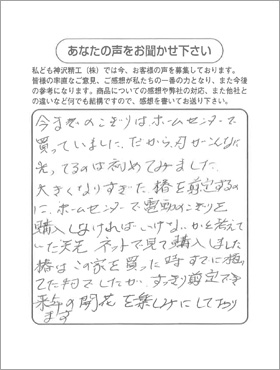 あなたの声をお聞かせ下さい
私ども神沢精工(株)では今、お客様の声を募集しております。
皆様の率直なご意見、ご感想が私たちの一番の力となり、また今後
の参考になります。商品についての感想や弊社の対応、また他社と
の違いなど何でも結構ですので、ご感想を書いてお送り下さい。
今までのこぎりはホームセンターで
買っていました。だから刃がこんなに
光ってるのは初めてみました。
大きくなりすぎた椿を剪定するの
に、ホームセンターで電動のこぎりを
購入しなければいけないかを考えて
いた矢先 ネットで見て購入しました
椿はこの家を買った時すでに植っ
てた物でしたが、すっきり剪定でき
来年の開花を楽しみにしており
ます